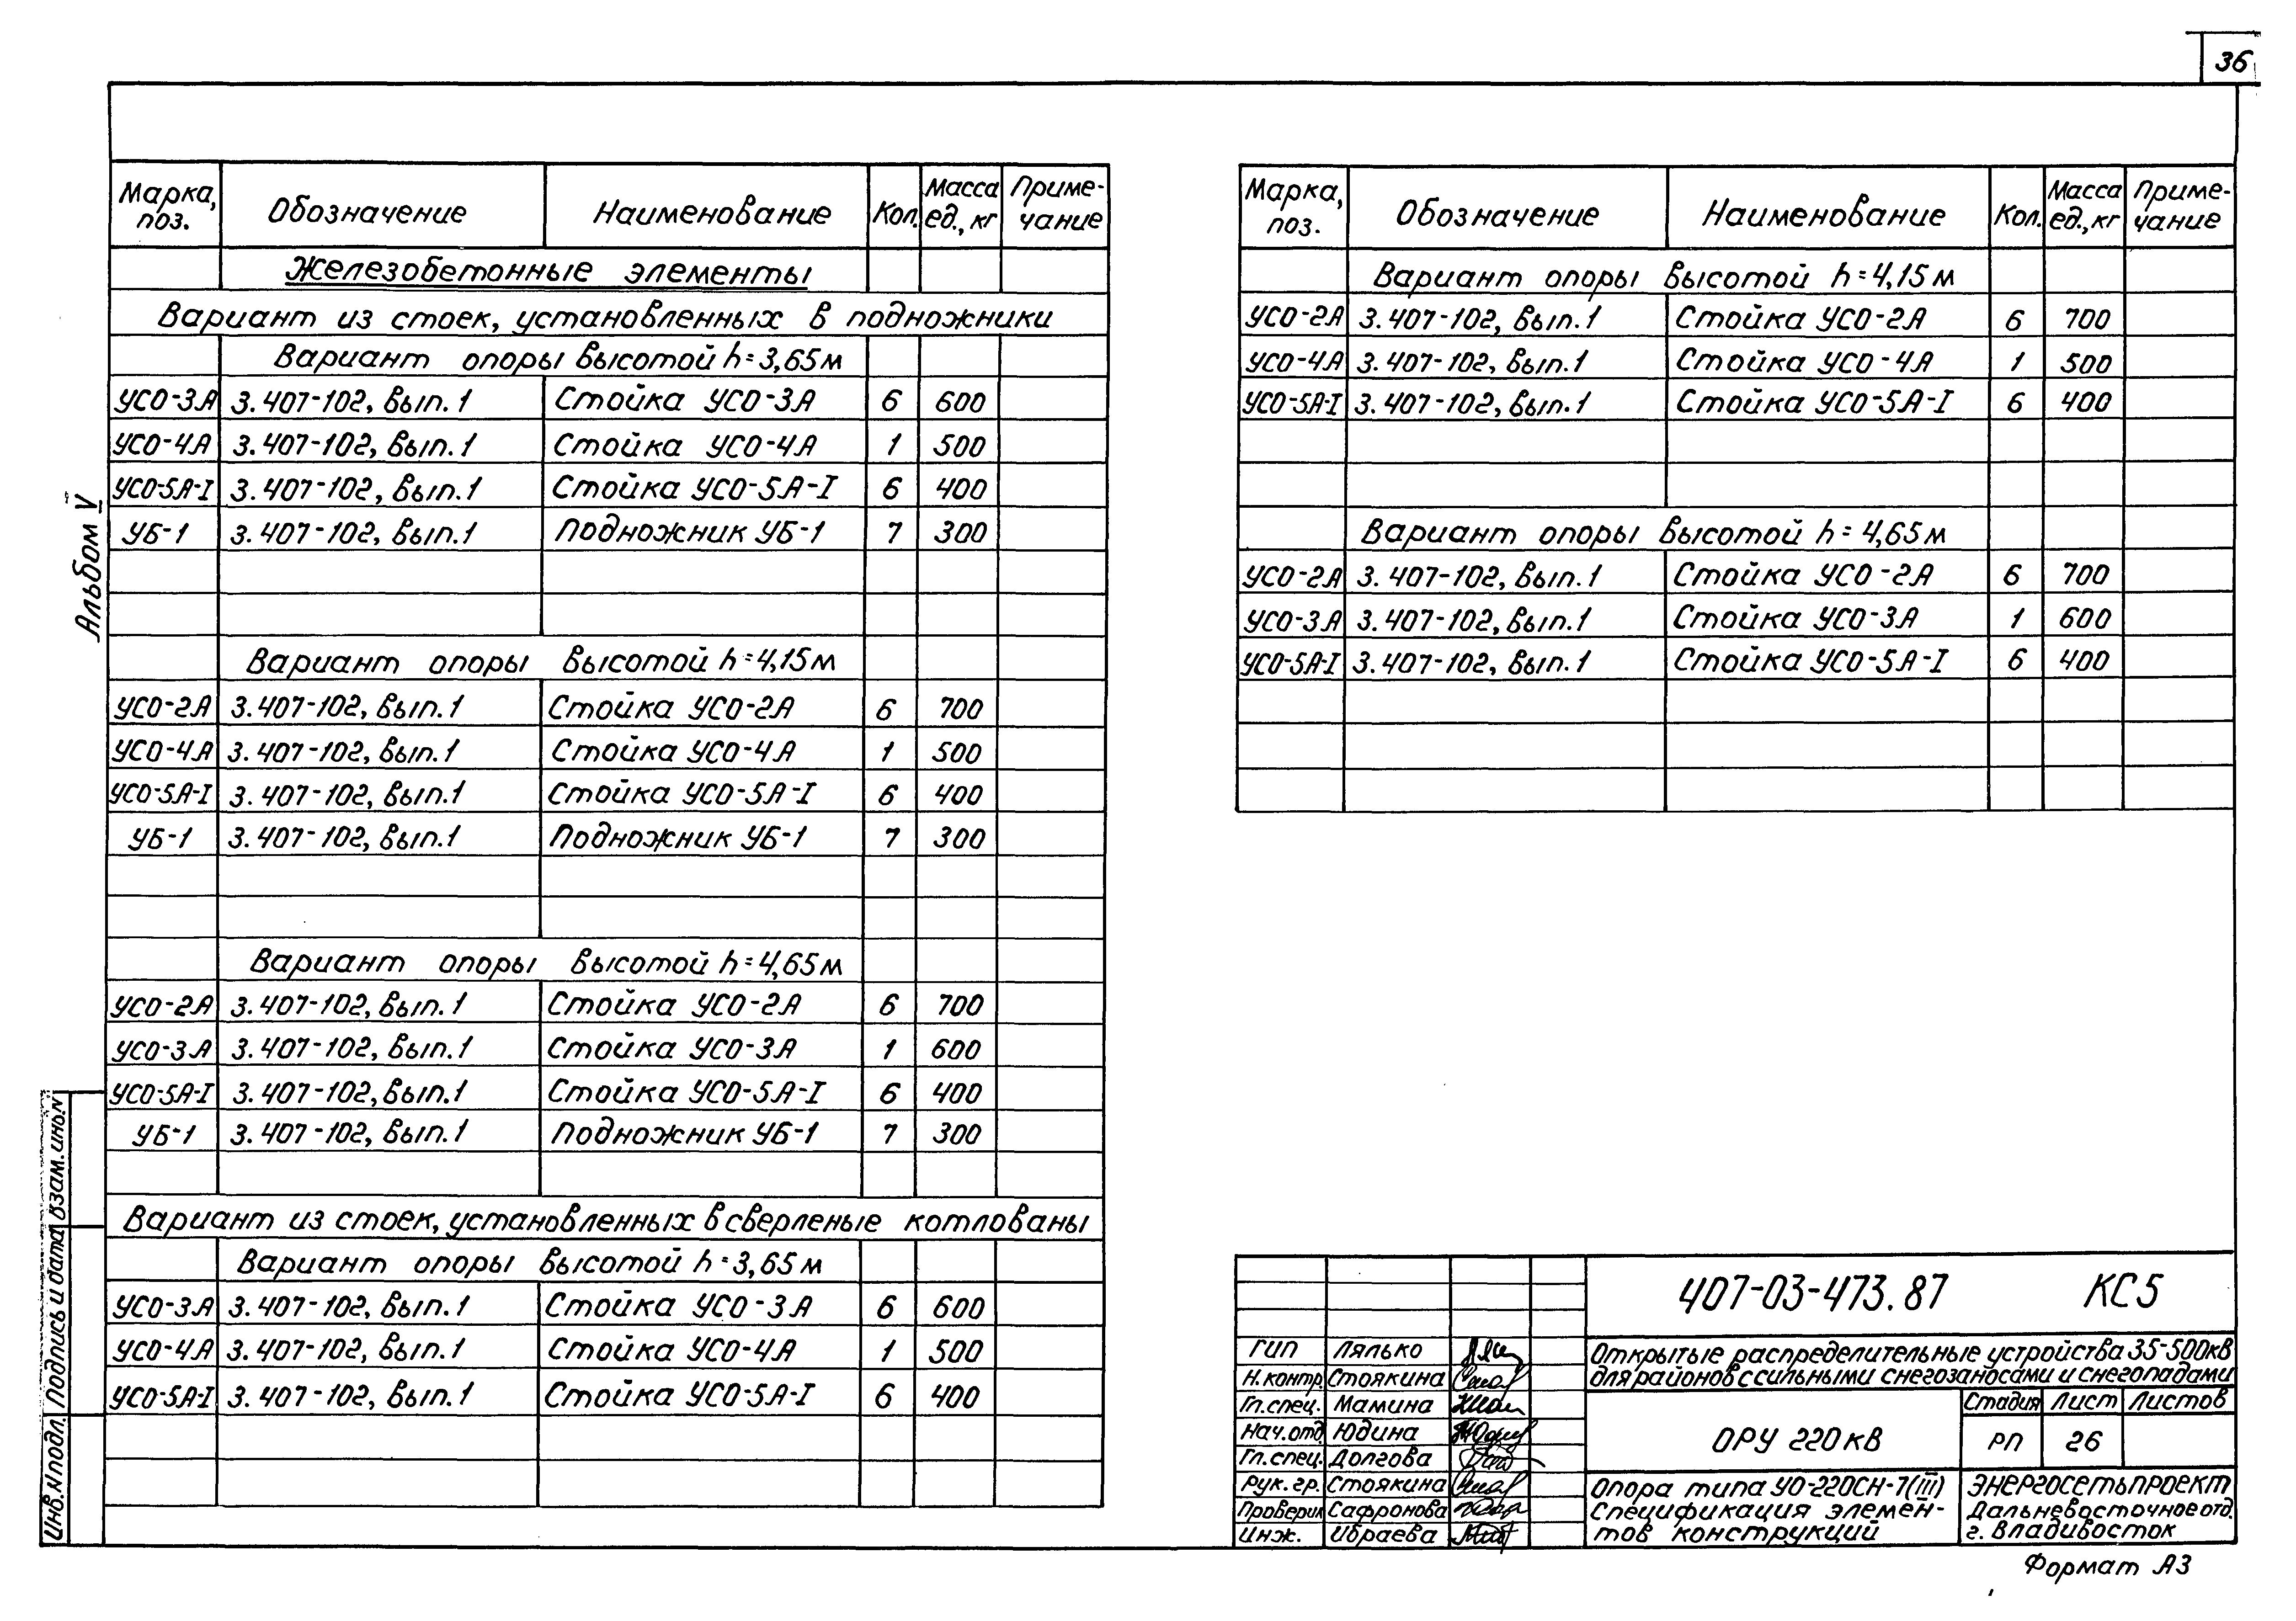 36
Альбом V
Марка, поз. Обозначение Наименование Кол. Масса ед., кг Приме-чание
Железобетонные элементы
Вариант из стоек, установленных в подножники
Вариант опоры высотой h=3,65м
УСО-3А 3.407-102, вып.1 Стойка УСО-3А 6 600
УСО-4А 3.407-102, вып.1 Стойка УСО-4А 1 500
УСО-5А-I 3.407-102, вып.1 Стойка УСО-5А-I 6 400
УБ-1 3.407-102, вып.1 Подножник УБ-1 7 300
Вариант опоры высотой h=4,15м
УСО-2А 3.407-102, вып.1 Стойка УСО-2А 6 700
УСО-4А 3.407-102, вып.1 Стойка УСО-4А 1 500
УСО-5А-I 3.407-102, вып.1 Стойка УСО-5А-I 6 400
УБ-1 3.407-102, вып.1 Подножник УБ-1 7 300
Вариант опоры высотой h=4,65м
УСО-2А 3.407-102, вып.1 Стойка УСО-2А 6 700
УСО-3А 3.407-102, вып.1 Стойка УСО-3А 1 600
УСО-5А-I 3.407-102, вып.1 Стойка УСО-5А-I 6 400
УБ-1 3.407-102, вып.1 Подножник УБ-1 7 300
Вариант из стоек, установленных в сверленые котлованы
Вариант опоры высотой h=3,65м
УСО-3А 3.407-102, вып.1 Стойка УСО-3А 6 600
УСО-4А 3.407-102, вып.1 Стойка УСО-4А 1 500
УСО-5А-I 3.407-102, вып.1 Стойка УСО-5А-I 6 400
Марка, поз. Обозначение Наименование Кол. Масса ед., кг Приме-чание
Вариант опоры высотой h=4,15м
УСО-2А 3.407-102, вып.1 Стойка УСО-2А 6 700
УСО-4А 3.407-102, вып.1 Стойка УСО-4А 1 500
УСО-5А-I 3.407-102, вып.1 Стойка УСО-5А-I 6 400
Вариант опоры высотой h=4,65м
УСО-2А 3.407-102, вып.1 Стойка УСО-2А 6 700
УСО-3А 3.407-102, вып.1 Стойка УСО-3А 1 600
УСО-5А-I 3.407-102, вып.1 Стойка УСО-5А-I 6 400
Инв.N подл. Подпись и дата Взам.инв.N
407-03-473.87 КС5
ГИП Лялько
Н.контр. Стоякина
Гл.спец. Мамина
Нач.отд Юдина
Гл.спец. Долгова
Рук.гр. Стоякина
Проверил Сафронова
Инж. Ибраева
Открытые распределительные устройства 35-500кВ
для районов с сильными снегозаносами и снегопадами
ОРУ 220кВ
Стадия Лист Листов
РП 26
Опора типа УО-220СН-7(III)
Спецификация элемен-
тов конструкций
ЭНЕРГОСЕТЬПРОЕКТ
Дальневосточное отд.
г. Владивосток
Формат А3